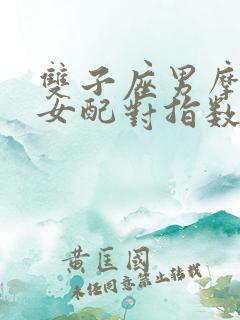 雙子座男摩
女配對指數
黃匡國
未經同意禁止轉載